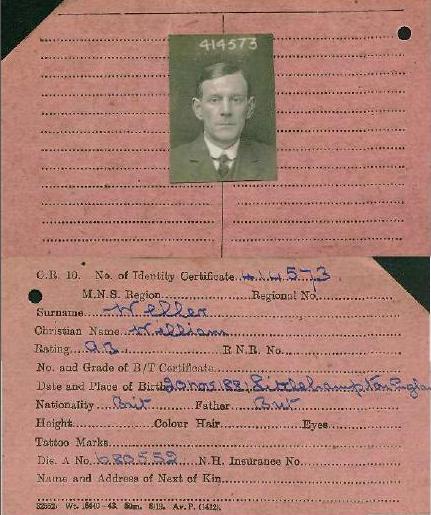 414573
C.R. 10. No. of Identity Certificate 414573
M.N.S. Region Regional No.
Surname Weller
Christian Name William
Rating A.B R.N.R. No.
No. and Grade of B/T Certificate
Date and Place of Birth 20 nov. 88, Littlehampton
Nationality Brit Father Brit
Height Colour Hair Eyes
Tattoo Marks
Dis. A No. 680552 N.H. Insurance No.
Name and Address of Next of Kin
Wt. 8/19. Av.P. (1412).